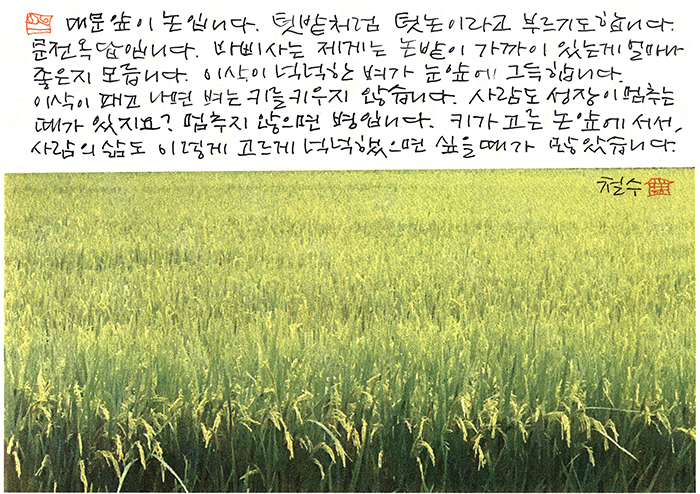 대문앞이 논입니다. 텃밭처럼 텃논이라고 부르기도합니다.
문전옥답입니다. 바삐사는 제게는 논밭이 가까이 있는게 얼마나
좋은지 모릅니다. 이삭이 넉넉한 벼가 눈앞에 그득합니다.
이삭이 패고 나면 벼는 키를 키우지 않습니다. 사람도 성장이 멈추는
때가 있지요? 멈추지 않으면 병입니다. 키가 고른 논앞에 서서,
사람의 삶도 이렇게 고르게 넉넉했으면 싶을때가 많았습니다.
철수